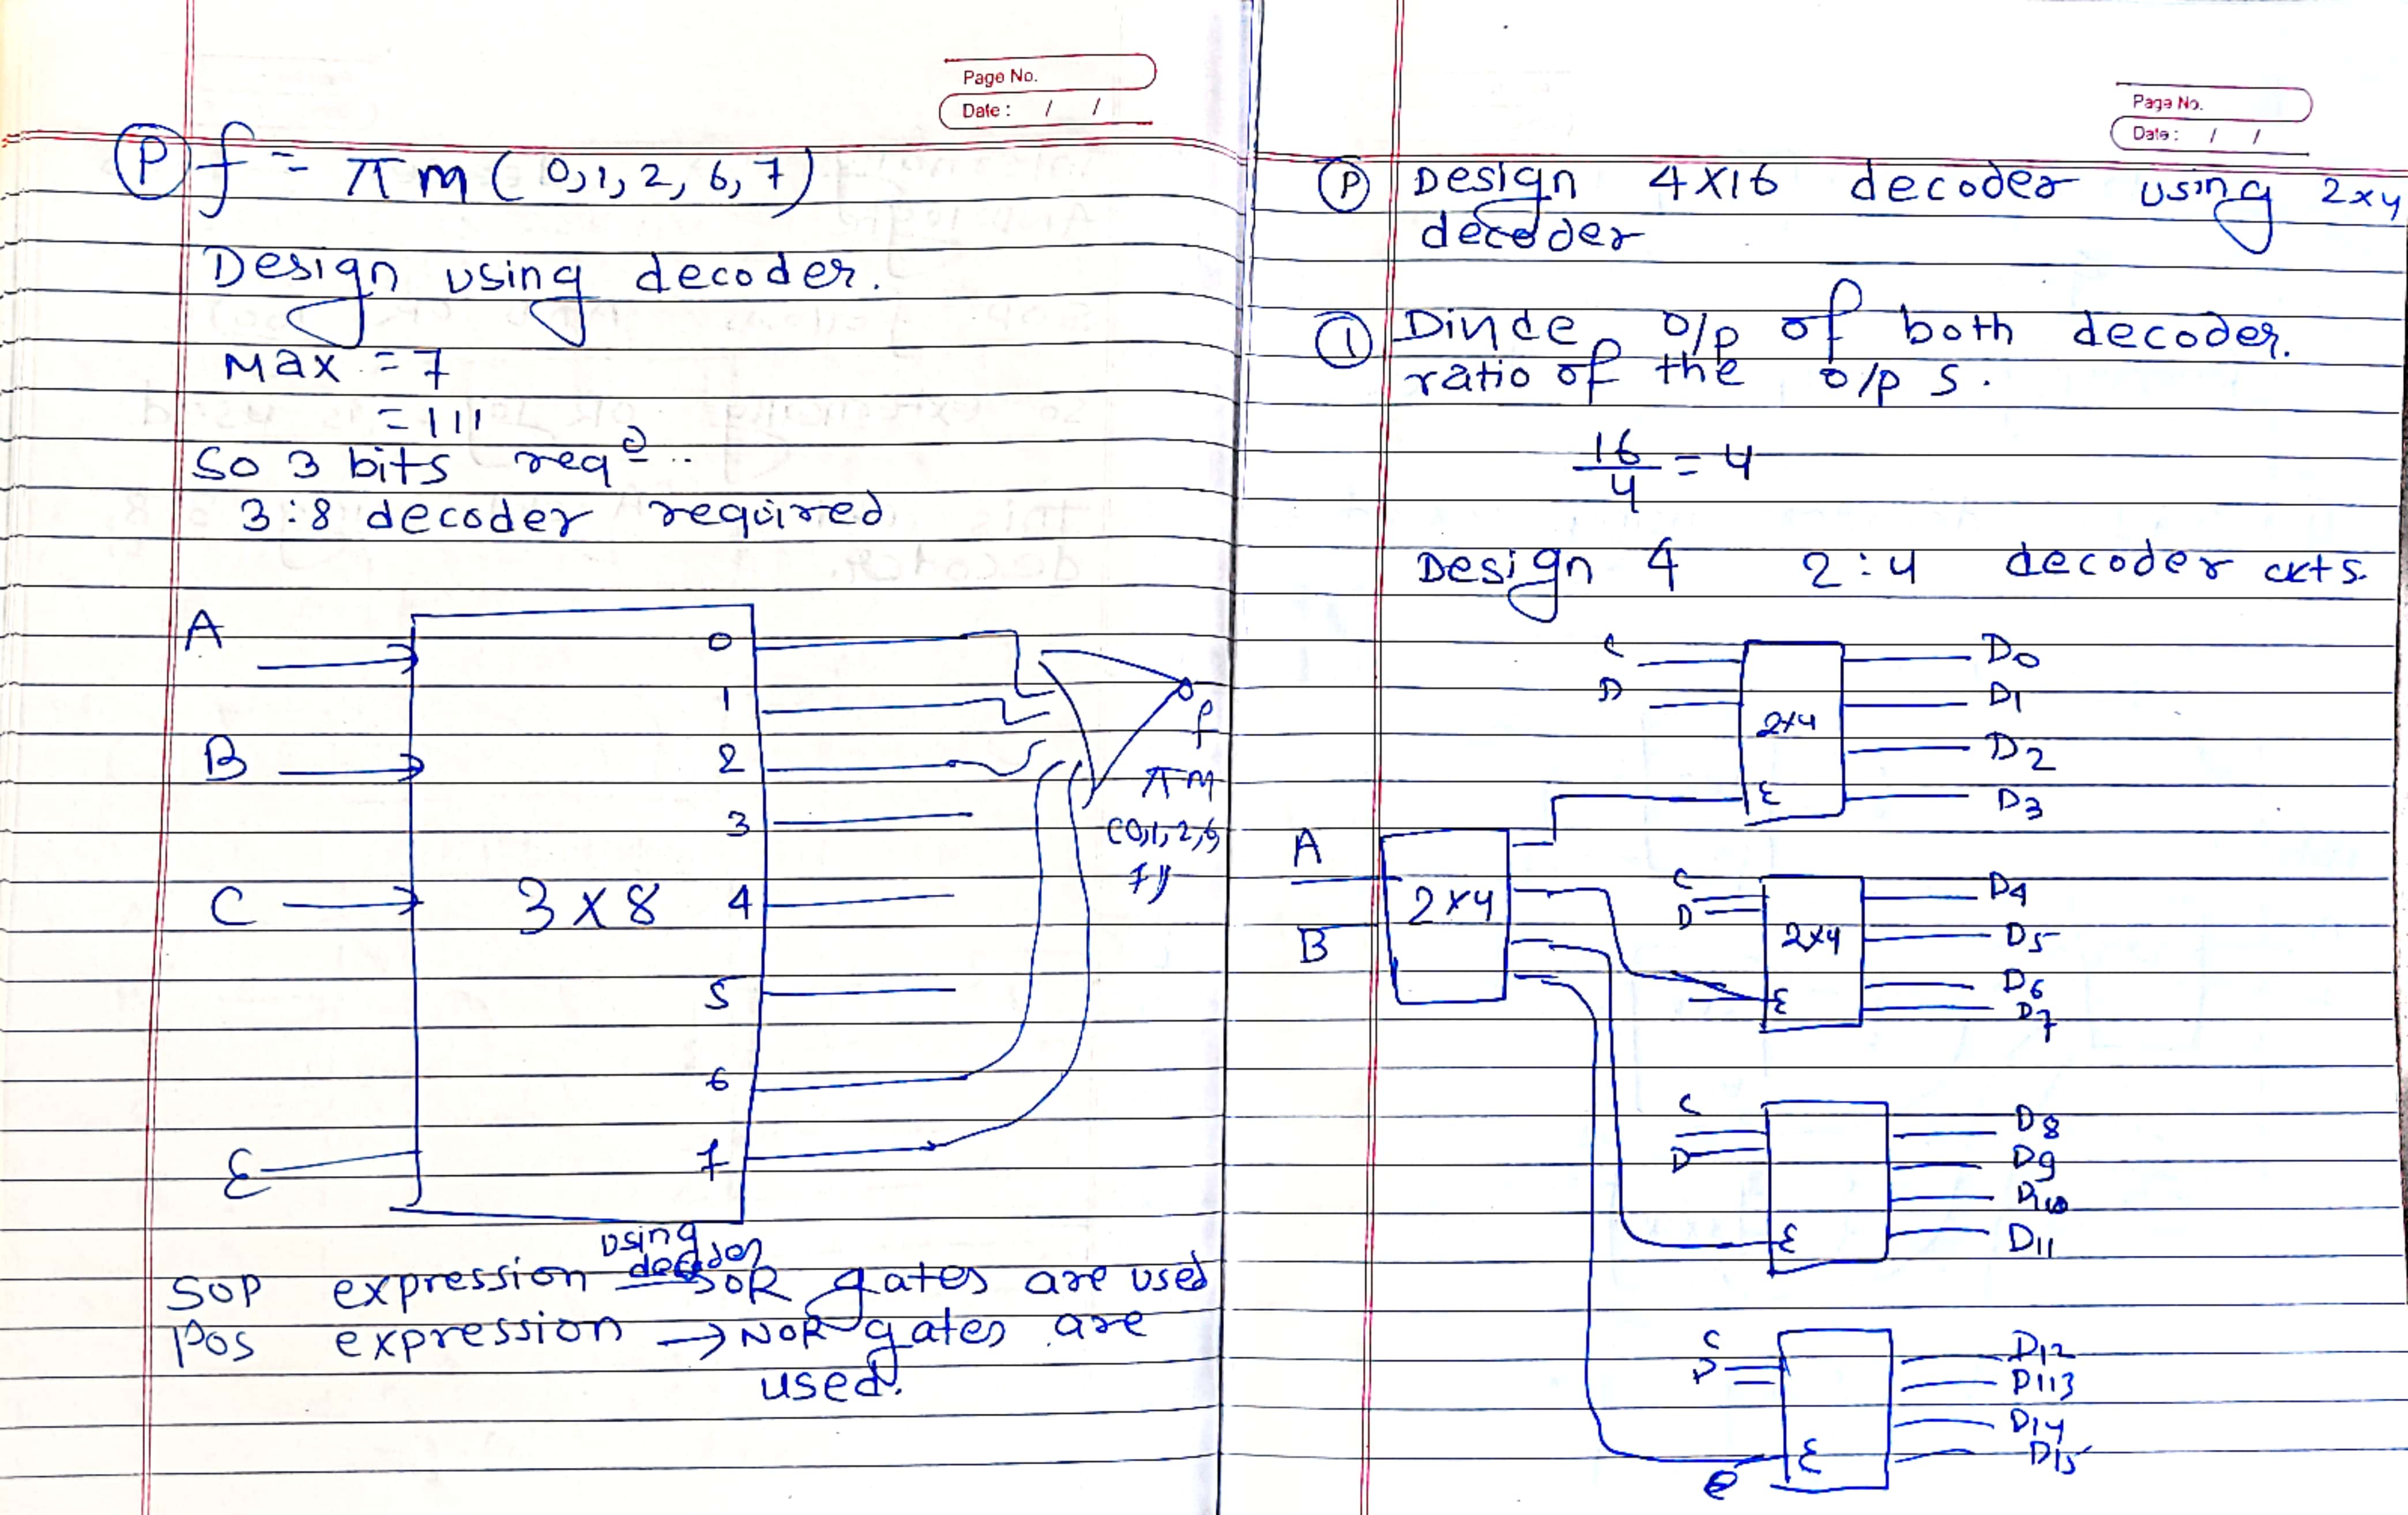 Page No.
Date : / /
(P) f = π M ( 0, 1, 2, 6, 7)
Design using decoder.
Max = 7
= 111
So 3 bits req^d..
3:8 decoder required
A
B
C
E
3 x 8
0
1
2
3
4
5
6
7
f
π M
(0,1,2,6,
7)
using
decoder
SOP expression → OR gates are used
POS expression → NOR gates are
used.
Page No.
Date : / /
(P) Design 4X16 decoder using 2x4
decoder
(1) Divide o/p of both decoder.
ratio of the o/p s.
16
4
= 4
Design 4 2:4 decoder ckts.
A
B
2 x 4
C
D
2x4
E
D0
D1
D2
D3
C
D
2x4
E
D4
D5
D6
D7
C
D
E
D8
D9
D10
D11
C
D
E
D12
D113
D14
D15